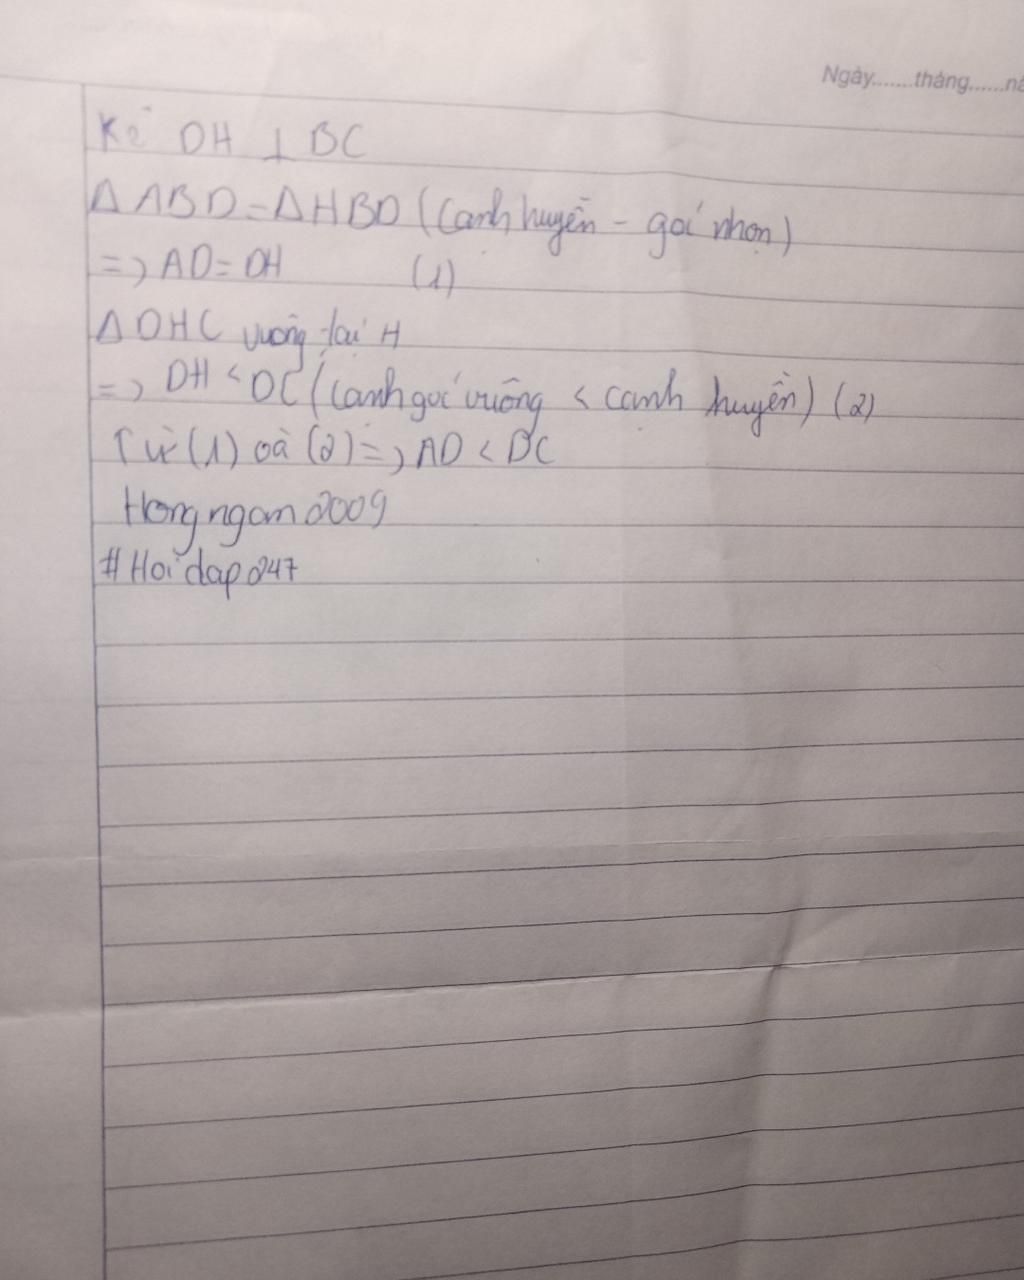 Ngày.......tháng......nă
Kẻ DH ⊥ BC
Δ ABD = Δ HBD (Cạnh huyền - góc nhọn)
=> AD = DH (1)
Δ DHC vuông tại H
=> DH < DC (Cạnh góc vuông < cạnh huyền) (2)
Từ (1) và (2) => AD < DC
Hongngam2009
#Hoidap247